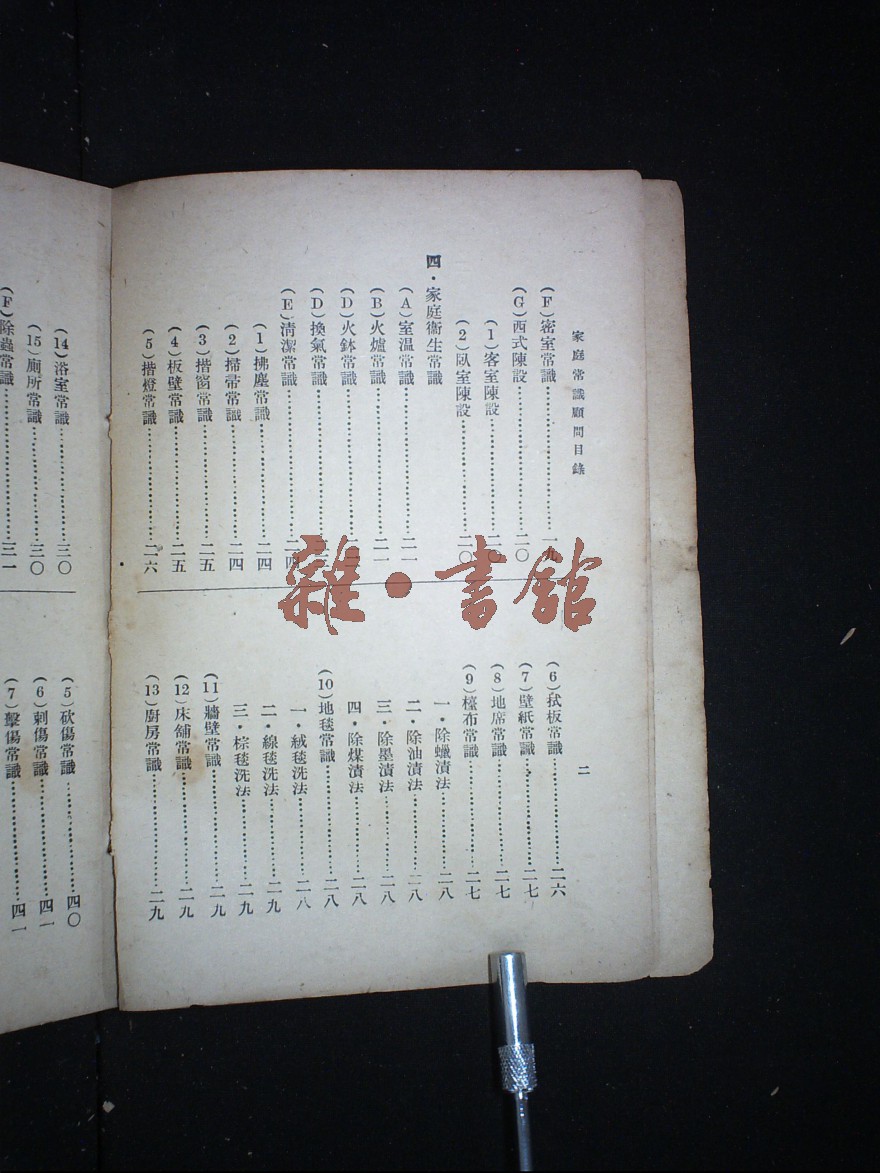 家庭常識顧問目錄
(F)密室常識……一九
(G)西式陳設……二〇
(1)客室陳設……二〇
(2)臥室陳設……二〇
四・家庭衞生常識
(A)室温常識……二一
(B)火爐常識……二一
(D)火鉢常識
(D)換氣常識
(E)清潔常識……二四
(1)拂塵常識……二四
(2)掃帚常識……二四
(3)揩窗常識……二五
(4)板壁常識……二五
(5)揩燈常識……二六
二
(6)拭板常識……二六
(7)壁紙常識……二七
(8)地席常識……二七
(9)檯布常識……二七
一・除蠟漬法……二八
二・除油漬法……二八
三・除墨漬法……二八
四・除煤漬法……二八
(10)地毯常識……二八
一・絨毯洗法……二八
二・線毯洗法……二九
三・棕毯洗法……二九
(11)牆壁常識……二九
(12)床舖常識……二九
(13)廚房常識……二九
(14)浴室常識……三〇
(15)廁所常識……三〇
(F)除蟲常識……三一
(5)砍傷常識……四〇
(6)刺傷常識……四一
(7)擊傷常識……四一
雜・書館